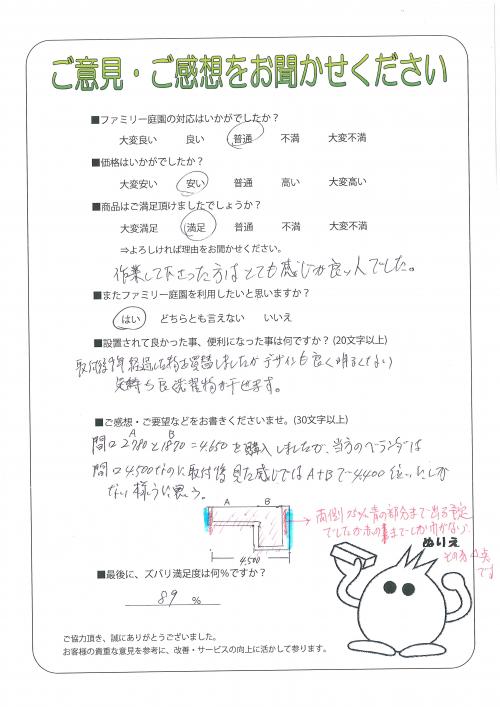 ご意見・ご感想をお聞かせください
■ファミリー庭園の対応はいかがでしたか？
大変良い 良い 普通 不満 大変不満
■価格はいかがでしたか？
大変安い 安い 普通 高い 大変高い
■商品はご満足頂けましたでしょうか？
大変満足 満足 普通 不満 大変不満
⇒よろしければ理由をお聞かせください。
作業して下さった方はとても感じが良い人でした。
■またファミリー庭園を利用したいと思いますか？
はい どちらとも言えない いいえ
■設置されて良かった事、便利になった事は何ですか？(20文字以上)
取付後 年経過した物を買替しましたがデザインも良く明るくなり
気持ち良く洗濯物が干せます。
■ご感想・ご要望などをお書きくださいませ。(30文字以上)
A B
間口2780と1870=4.650を購入しましたが、当方のベランダは
間口4.500なのに取付後見た感じではA+Bで4.400位 しか
ない様に思う。
A B
両側 青の部分まで出る予定
でしたが赤の までしか 
4.500
ぬりえ
その為 点
です
■最後に、ズバリ満足度は何％ですか？
89 %
ご協力頂き、誠にありがとうございました。
お客様の貴重な意見を参考に、改善・サービスの向上に活かして参ります。